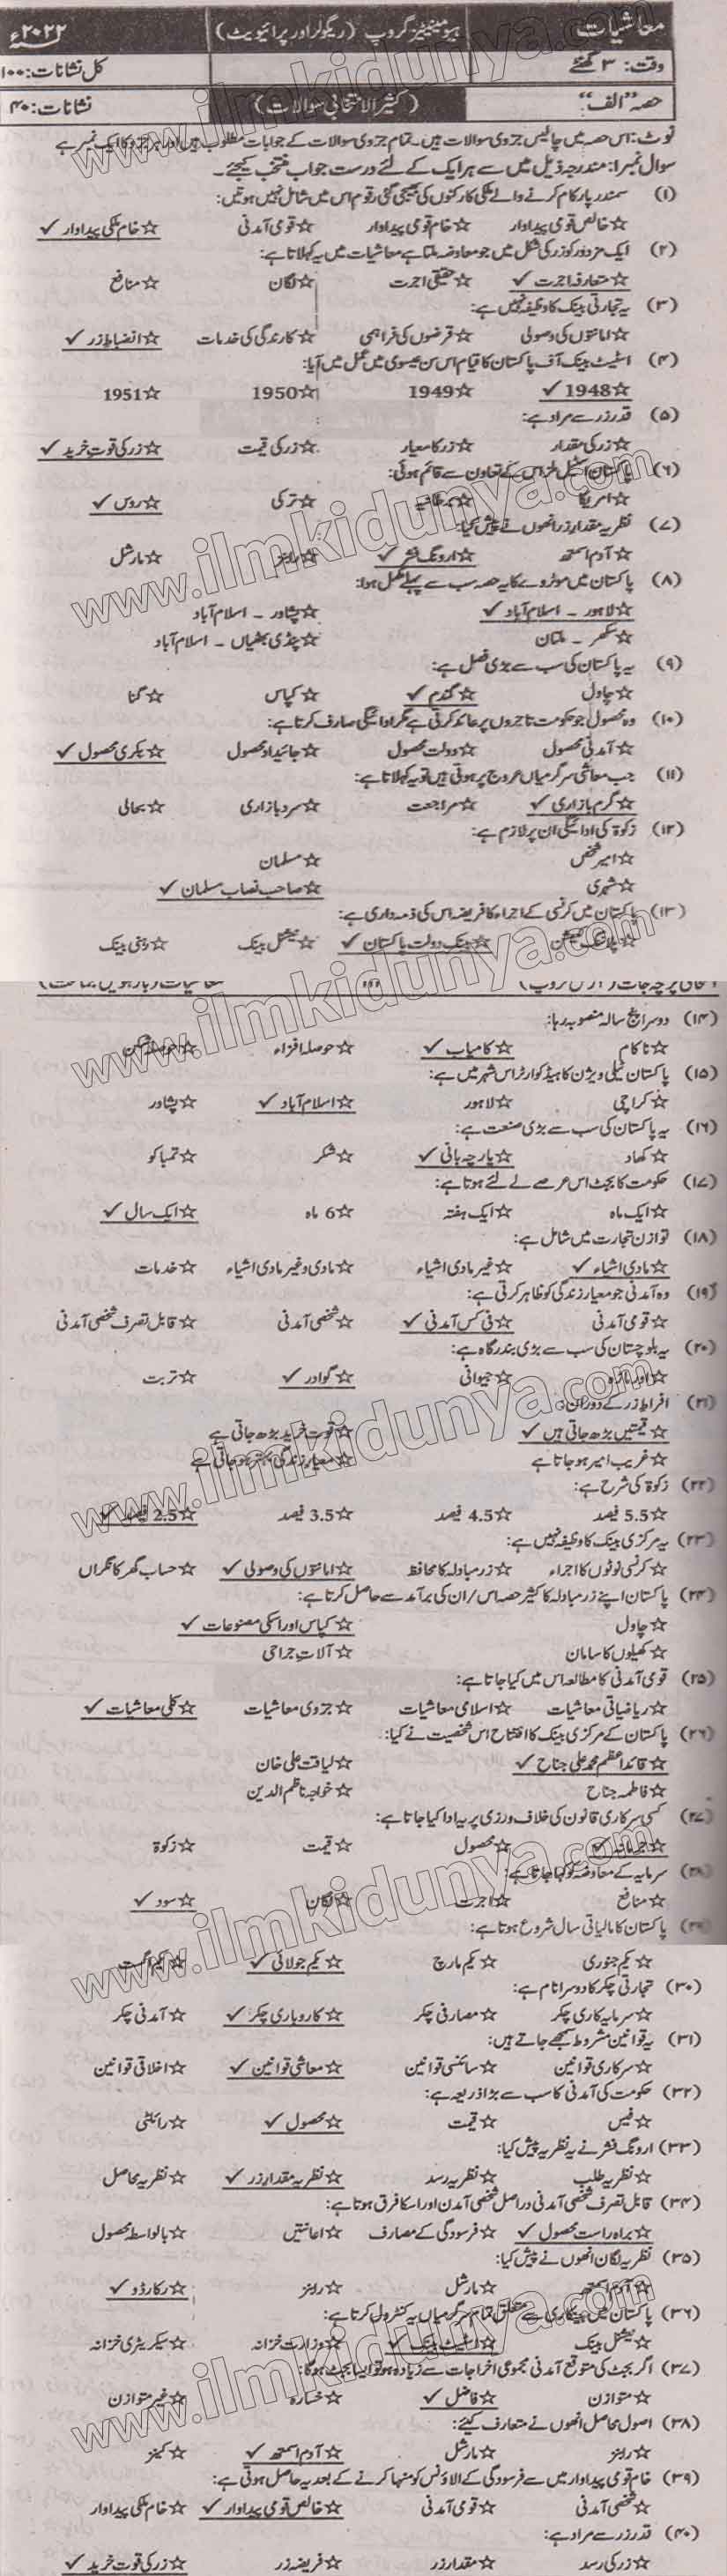 معاشیات ہیومینیٹیز گروپ (ریگولر اور پرائیویٹ) ۲۰۲۲ء
وقت: ۳ گھنٹے کل نشانات: ۱۰۰
حصہ "الف" (کثیر الانتخابی سوالات) نشانات: ۴۰
نوٹ: اس حصہ میں چالیس جزوی سوالات ہیں۔ تمام جزوی سوالات کے جوابات مطلوب ہیں اور ہر جزو کا ایک نمبر ہے
سوال نمبر ۱: مندرجہ ذیل میں سے ہر ایک کے لئے درست جواب منتخب کیجئے۔
(۱) سمندر پار کام کرنے والے ملکی کارکنوں کی بھیجی گئی رقوم اس میں شامل نہیں ہوتیں:
☆ خالص قومی پیداوار ☆ خام قومی پیداوار ☆ قومی آمدنی ☆ خام ملکی پیداوار ✓
(۲) ایک مزدور کو زر کی شکل میں جو معاوضہ ملتا ہے معاشیات میں یہ کہلاتا ہے:
☆ متعارف اجرت ✓ ☆ حقیقی اجرت ☆ لگان ☆ منافع
(۳) یہ تجارتی بینک کا وظیفہ نہیں ہے:
☆ امانتوں کی وصولی ☆ قرضوں کی فراہمی ☆ کارندگی کی خدمات ☆ انضباط زر ✓
(۴) اسٹیٹ بینک آف پاکستان کا قیام اس سن عیسوی میں عمل میں آیا:
☆ 1948 ✓ ☆ 1949 ☆ 1950 ☆ 1951
(۵) قدر زر سے مراد ہے:
☆ زر کی مقدار ☆ زر کا معیار ☆ زر کی قیمت ☆ زر کی قوت خرید ✓
(۶) پاکستان اسٹیل ملز اس کے تعاون سے قائم ہوئی:
☆ امریکا ☆ برطانیہ ☆ ترکی ☆ روس ✓
(۷) نظریہ مقدار زر انھوں نے پیش کیا:
☆ آدم اسمتھ ☆ ارونگ فشر ✓ ☆ رابنز ☆ مارشل
(۸) پاکستان میں موٹروے کا یہ حصہ سب سے پہلے مکمل ہوا:
☆ لاہور - اسلام آباد ✓ ☆ پشاور - اسلام آباد
☆ سکھر - ملتان ☆ پنڈی بھٹیاں - اسلام آباد
(۹) یہ پاکستان کی سب سے بڑی فصل ہے:
☆ چاول ☆ گندم ✓ ☆ کپاس ☆ گنا
(۱۰) وہ محصول جو حکومت تاجروں پر عائد کرتی ہے مگر ادائیگی صارف کرتا ہے:
☆ آمدنی محصول ☆ دولت محصول ☆ جائیداد محصول ☆ بکری محصول ✓
(۱۱) جب معاشی سرگرمیاں عروج پر ہوتی ہیں تو یہ کہلاتا ہے:
☆ گرم بازاری ✓ ☆ مراجعت ☆ سرد بازاری ☆ بحالی
(۱۲) زکوٰۃ کی ادائیگی ان پر لازم ہے:
☆ امیر شخص ☆ مسلمان
☆ شہری ☆ صاحب نصاب مسلمان ✓
(۱۳) پاکستان میں کرنسی کے اجراء کا فریضہ اس کی ذمہ داری ہے:
☆ پلاننگ کمیشن ☆ بینک دولت پاکستان ✓ ☆ نیشنل بینک ☆ زرعی بینک
(۱۴) دوسرا پنج سالہ منصوبہ رہا:
☆ ناکام ☆ کامیاب ✓ ☆ حوصلہ افزاء ☆ حوصلہ شکن
(۱۵) پاکستان ٹیلی ویژن کا ہیڈ کوارٹر اس شہر میں ہے:
☆ کراچی ☆ لاہور ☆ اسلام آباد ✓ ☆ پشاور
(۱۶) یہ پاکستان کی سب سے بڑی صنعت ہے:
☆ کھاد ☆ پارچہ بانی ✓ ☆ شکر ☆ تمباکو
(۱۷) حکومت کا بجٹ اس عرصے لے لئے ہوتا ہے:
☆ ایک ماہ ☆ ایک ہفتہ ☆ 6 ماہ ☆ ایک سال ✓
(۱۸) توازن تجارت میں شامل ہے:
☆ مادی اشیاء ✓ ☆ غیر مادی اشیاء ☆ مادی و غیر مادی اشیاء ☆ خدمات
(۱۹) وہ آمدنی جو معیار زندگی کو ظاہر کرتی ہے:
☆ قومی آمدنی ☆ فی کس آمدنی ✓ ☆ شخصی آمدنی ☆ قابل تصرف شخصی آمدنی
(۲۰) یہ بلوچستان کی سب سے بڑی بندرگاہ ہے:
☆ اورماڑہ ☆ جیوانی ☆ گوادر ✓ ☆ تربت
(۲۱) افراط زر کے دوران:
☆ قیمتیں بڑھ جاتی ہیں ✓ ☆ قوت خرید بڑھ جاتی ہے
☆ غریب امیر ہو جاتا ہے ☆ معیار زندگی بہتر ہو جاتی ہے
(۲۲) زکوٰۃ کی شرح ہے:
☆ 5.5 فیصد ☆ 4.5 فیصد ☆ 3.5 فیصد ☆ 2.5 فیصد ✓
(۲۳) یہ مرکزی بینک کا وظیفہ نہیں ہے:
☆ کرنسی نوٹوں کا اجراء ☆ زرمبادلہ کا محافظ ☆ امانتوں کی وصولی ✓ ☆ حساب گھر کا نگراں
(۲۴) پاکستان اپنے زرمبادلہ کا کثیر حصہ اس/ان کی برآمد سے حاصل کرتا ہے:
☆ چاول ☆ کپاس اور اسکی مصنوعات ✓
☆ کھیلوں کا سامان ☆ آلات جراحی
(۲۵) قومی آمدنی کا مطالعہ اس میں کیا جاتا ہے:
☆ ریاضیاتی معاشیات ☆ اسلامی معاشیات ☆ جزوی معاشیات ☆ کلی معاشیات ✓
(۲۶) پاکستان کے مرکزی بینک کا افتتاح اس شخصیت نے کیا:
☆ قائد اعظم محمد علی جناح ✓ ☆ لیاقت علی خان
☆ فاطمہ جناح ☆ خواجہ ناظم الدین
(۲۷) کسی سرکاری قانون کی خلاف ورزی پر یہ ادا کیا جاتا ہے:
☆ جرمانہ ✓ ☆ محصول ☆ قیمت ☆ زکوٰۃ
(۲۸) سرمایہ کے معاوضہ کو کہا جاتا ہے:
☆ منافع ☆ اجرت ☆ لگان ☆ سود ✓
(۲۹) پاکستان کا مالیاتی سال شروع ہوتا ہے:
☆ یکم جنوری ☆ یکم مارچ ☆ یکم جولائی ✓ ☆ یکم اگست
(۳۰) تجارتی چکر کا دوسرا نام ہے:
☆ سرمایہ کاری چکر ☆ مصارفی چکر ☆ کاروباری چکر ✓ ☆ آمدنی چکر
(۳۱) یہ قوانین مشروط سمجھے جاتے ہیں:
☆ سرکاری قوانین ☆ سائنسی قوانین ☆ معاشی قوانین ✓ ☆ اخلاقی قوانین
(۳۲) حکومت کی آمدنی کا سب سے بڑا ذریعہ ہے:
☆ فیس ☆ قیمت ☆ محصول ✓ ☆ رائلٹی
(۳۳) ارونگ فشر نے یہ نظریہ پیش کیا:
☆ نظریہ طلب ☆ نظریہ رسد ☆ نظریہ مقدار زر ✓ ☆ نظریہ محاصل
(۳۴) قابل تصرف شخصی آمدنی دراصل شخصی آمدن اور اسکا فرق ہوتا ہے:
☆ براہ راست محصول ✓ ☆ فرسودگی کے مصارف ☆ اعانتیں ☆ بالواسطہ محصول
(۳۵) نظریہ لگان انھوں نے پیش کیا:
☆ آدم اسمتھ ☆ مارشل ☆ رابنز ☆ رکارڈو ✓
(۳۶) پاکستان میں بینکاری سے متعلق تمام سرگرمیاں یہ کنٹرول کرتا ہے:
☆ نیشنل بینک ☆ اسٹیٹ بینک ✓ ☆ وزارت خزانہ ☆ سیکریٹری خزانہ
(۳۷) اگر بجٹ کی متوقع آمدنی مجموعی اخراجات سے زیادہ ہو تو ایسا بجٹ ہوگا:
☆ متوازن ☆ فاضل ✓ ☆ خسارہ ☆ غیر متوازن
(۳۸) اصول محاصل انھوں نے متعارف کیئے:
☆ رابنز ☆ مارشل ☆ آدم اسمتھ ✓ ☆ کینز
(۳۹) خام قومی پیداوار میں سے فرسودگی کے الاؤنس کو منہا کرنے کے بعد یہ حاصل ہوتی ہے:
☆ شخصی آمدنی ☆ قومی آمدنی ☆ خالص قومی پیداوار ✓ ☆ خام ملکی پیداوار
(۴۰) قدر زر سے مراد ہے:
☆ زر کی رسد ☆ مقدار زر ☆ فریضہ زر ☆ زر کی قوت خرید ✓
www.ilmkidunya.com
www.ilmkidunya.com
www.ilmkidunya.com
www.ilmkidunya.com
www.ilmkidunya.com
www.ilmkidunya.com